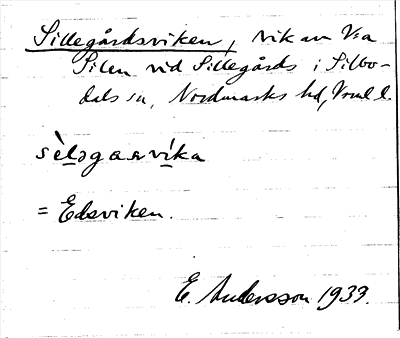 Sillegårdsviken, vik av V:a
Silen vid Sillegårds i Silbo-
dals sn, Nordmarks hd, Vrml l.
sèləgaʀvíka
= Edsviken.
E. Andersson 1933.